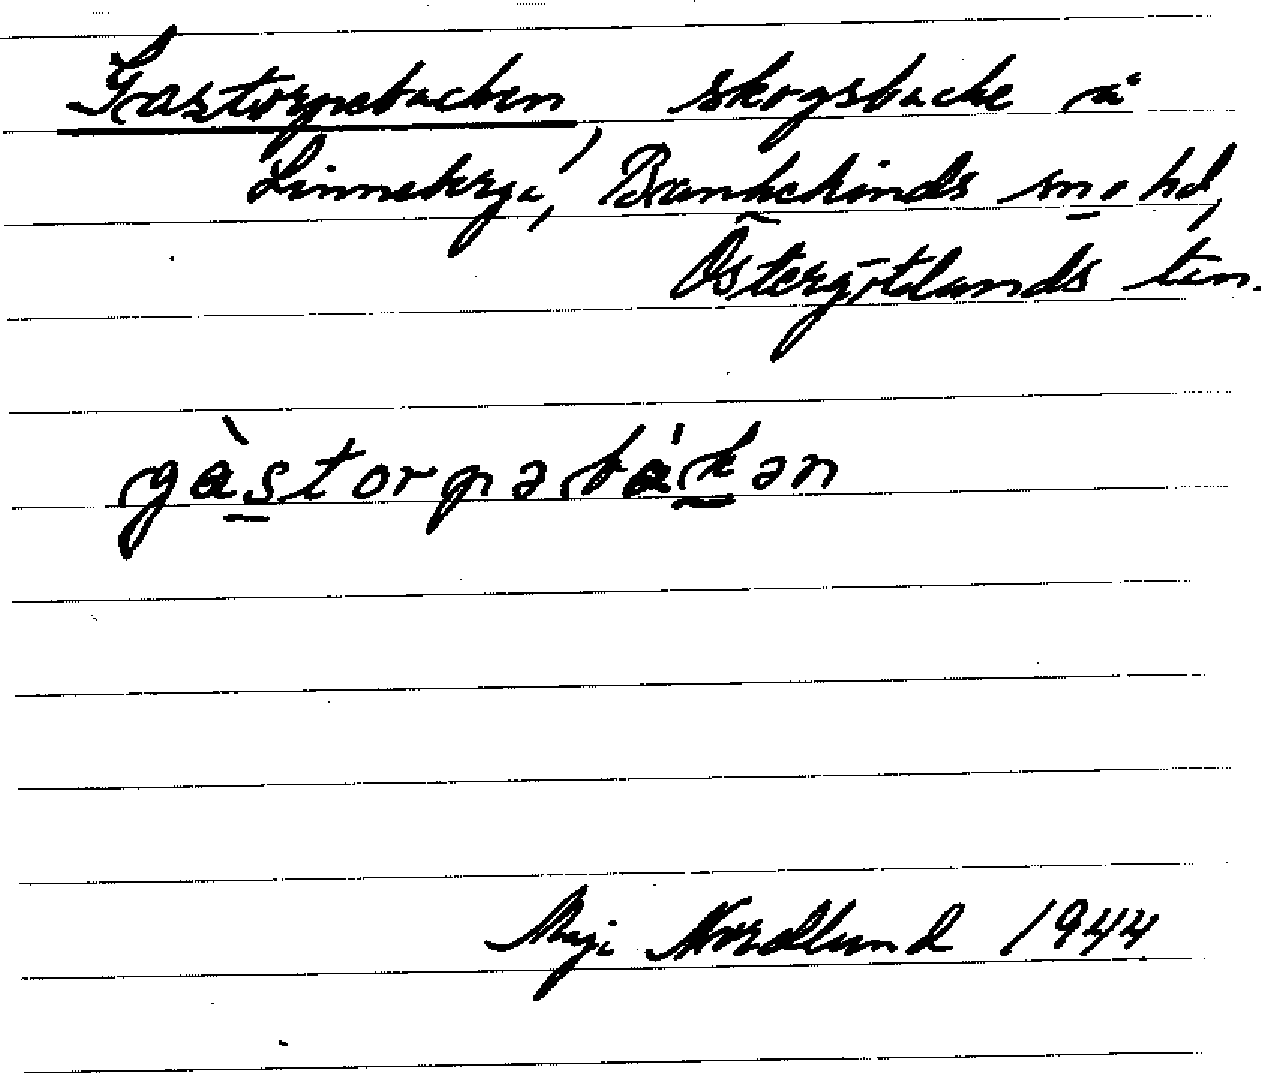 Gastorpebacken, skogsbacke å
Linneberga, Bankekinds sn o hd,
Östergötlands län.
gàstorpəbákən
Maj Nordlund 1944